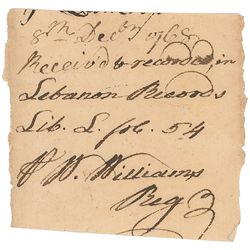 8th Decr. 1768
Receiv'd & recorded, in
Lebanon Records
Lib. L. fol. 54
W. Williams
Regr